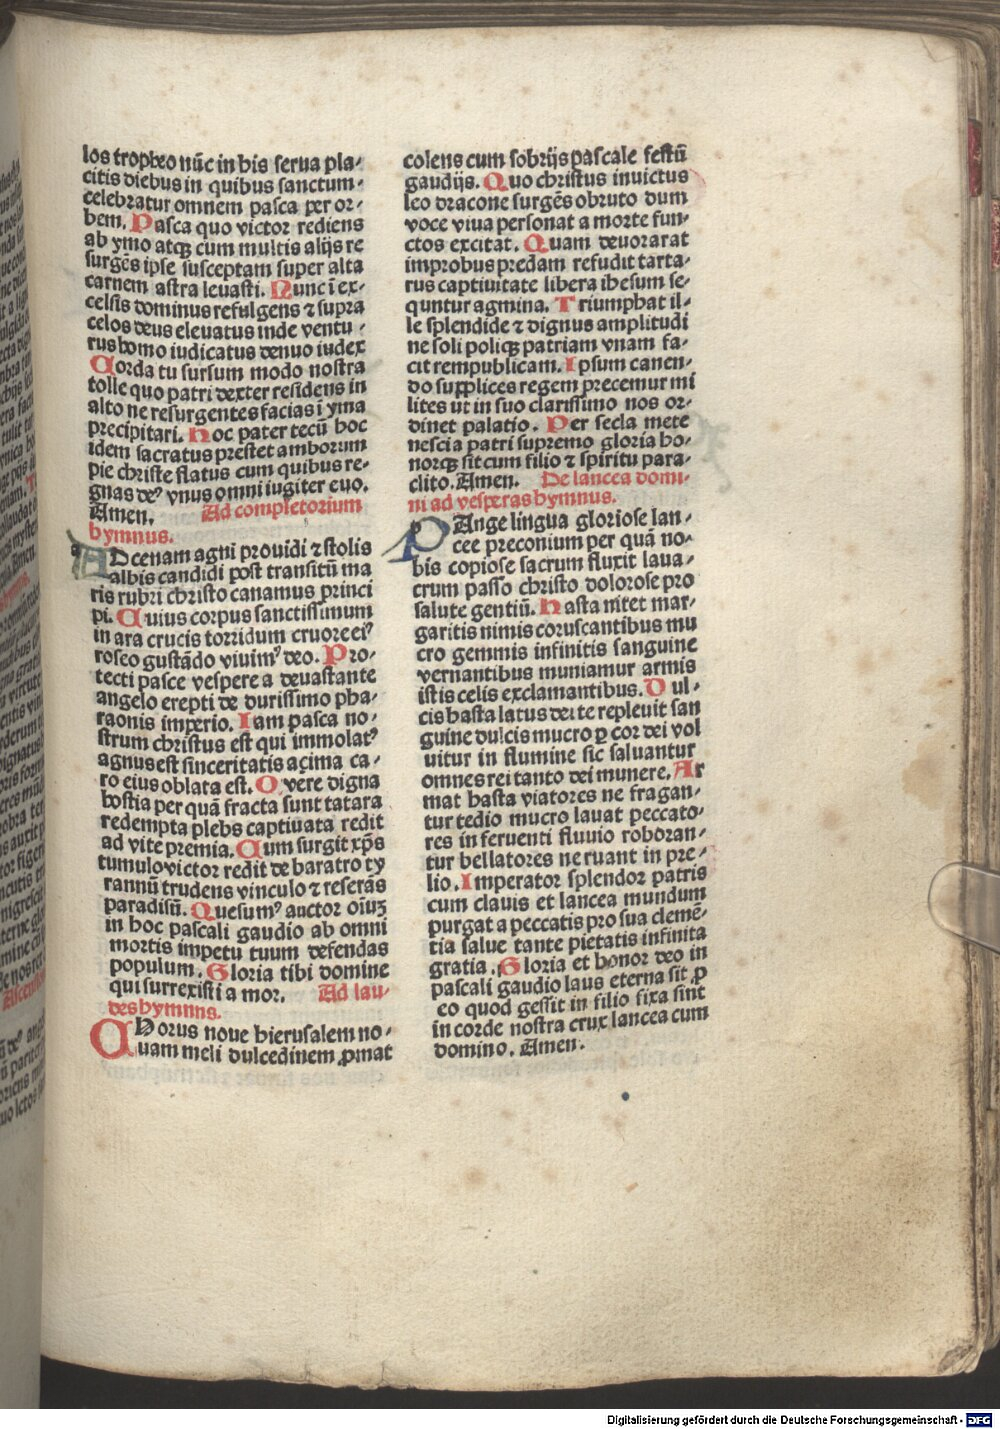 los tropheo nūc in his serua pla⸗
citis diebus in quibus sanctum⸗
celebratur omnem pasca per or⸗
bem. Pasca quo victor rediens
ab ymo atqꝫ cum multis alijs re
surgēs ipse susceptam super alta
carnem astra leuasti. Nunc ī ex⸗
celsis dominus refulgens ⁊ supra
celos deus eleuatus inde ventu⸗
rus homo iudicatus denuo iudex
Corda tu sursum modo nostra
tolle quo patri dexter residens in
alto ne resurgentes facias ī yma
precipitari. Hoc pater tecū hoc
idem sacratus prestet amborum
pie christe flatus cum quibus re⸗
gnas deꝰ vnus omni iugiter euo.
Amen. Ad completorium
hymnus.
AD cenam agni prouidi ⁊ stolis
albis candidi post transitū ma
ris rubri christo canamus princi
pi. Cuius corpus sanctissimum
in ara crucis torridum cruore eiꝰ
roseo gustādo viuimꝰ deo. Pro⸗
tecti pasce vespere a deuastante
angelo erepti de durissimo pha⸗
raonis imperio. Iam pasca no⸗
strum christus est qui immolatꝰ
agnus est sinceritatis açima ca⸗
ro eius oblata est. O vere digna
hostia per quā fracta sunt tatara
redempta plebs captiuata redit
ad vite premia. Cum surgit xp̄s
tumulo victor redit de baratro ty
rannū trudens vinculo ⁊ reserās
paradisū. Quesumꝰ auctor oīuꝫ
in hoc pascali gaudio ab omni
mortis impetu tuum defendas
populum. Gloria tibi domine
qui surrexisti a mor. Ad lau⸗
des hymnns.
CHorus noue hierusalem no⸗
uam meli dulcedinem ꝓmat
colens cum sobrijs pascale festū
gaudijs. Quo christus inuictus
leo dracone surgēs obruto dum
voce viua personat a morte fun⸗
ctos excitat. Quam deuorarat
improbus predam refudit tarta⸗
rus captiuitate libera ihesum se⸗
quntur agmina. Triumphat il⸗
le splendide ⁊ dignus amplitudi
ne soli poliqꝫ patriam vnam fa⸗
cit rempublicam. Ipsum canen⸗
do supplices regem precemur mi
lites ut in suo clarissimo nos or⸗
dinet palatio. Per secla mete
nescia patri supremo gloria ho⸗
norqꝫ sit cum filio ⁊ spiritu para⸗
clito. Amen. De lancea domi⸗
ni ad vesperas hymnus.
PAnge lingua gloriose lan⸗
cee preconium per quā no⸗
bis copiose sacrum fluxit laua⸗
crum passo christo dolorose pro
salute gentiū. Hasta nitet mar⸗
garitis nimis coruscantibus mu
cro gemmis infinitis sanguine
vernantibus muniamur armis
istis celis exclamantibus. Dul⸗
cis hasta latus dei te repleuit san
guine dulcis mucro ꝑ cor dei vol
uitur in flumine sic saluantur
omnes rei tanto dei munere. Ar
mat hasta viatores ne fragan⸗
tur tedio mucro lauat peccato⸗
res in feruenti fluuio roboran⸗
tur bellatores ne ruant in pre⸗
lio. Imperator splendor patris
cum clauis et lancea mundum
purgat a peccatis pro sua clemē⸗
tia salue tante pietatis infinita
gratia. Gloria et honor deo in
pascali gaudio laus eterna sit ꝓ
eo quod gessit in filio fixa sint
in corde nostra crux lancea cum
domino. Amen.
Digitalisierung gefördert durch die Deutsche Forschungsgemeinschaft - DFG